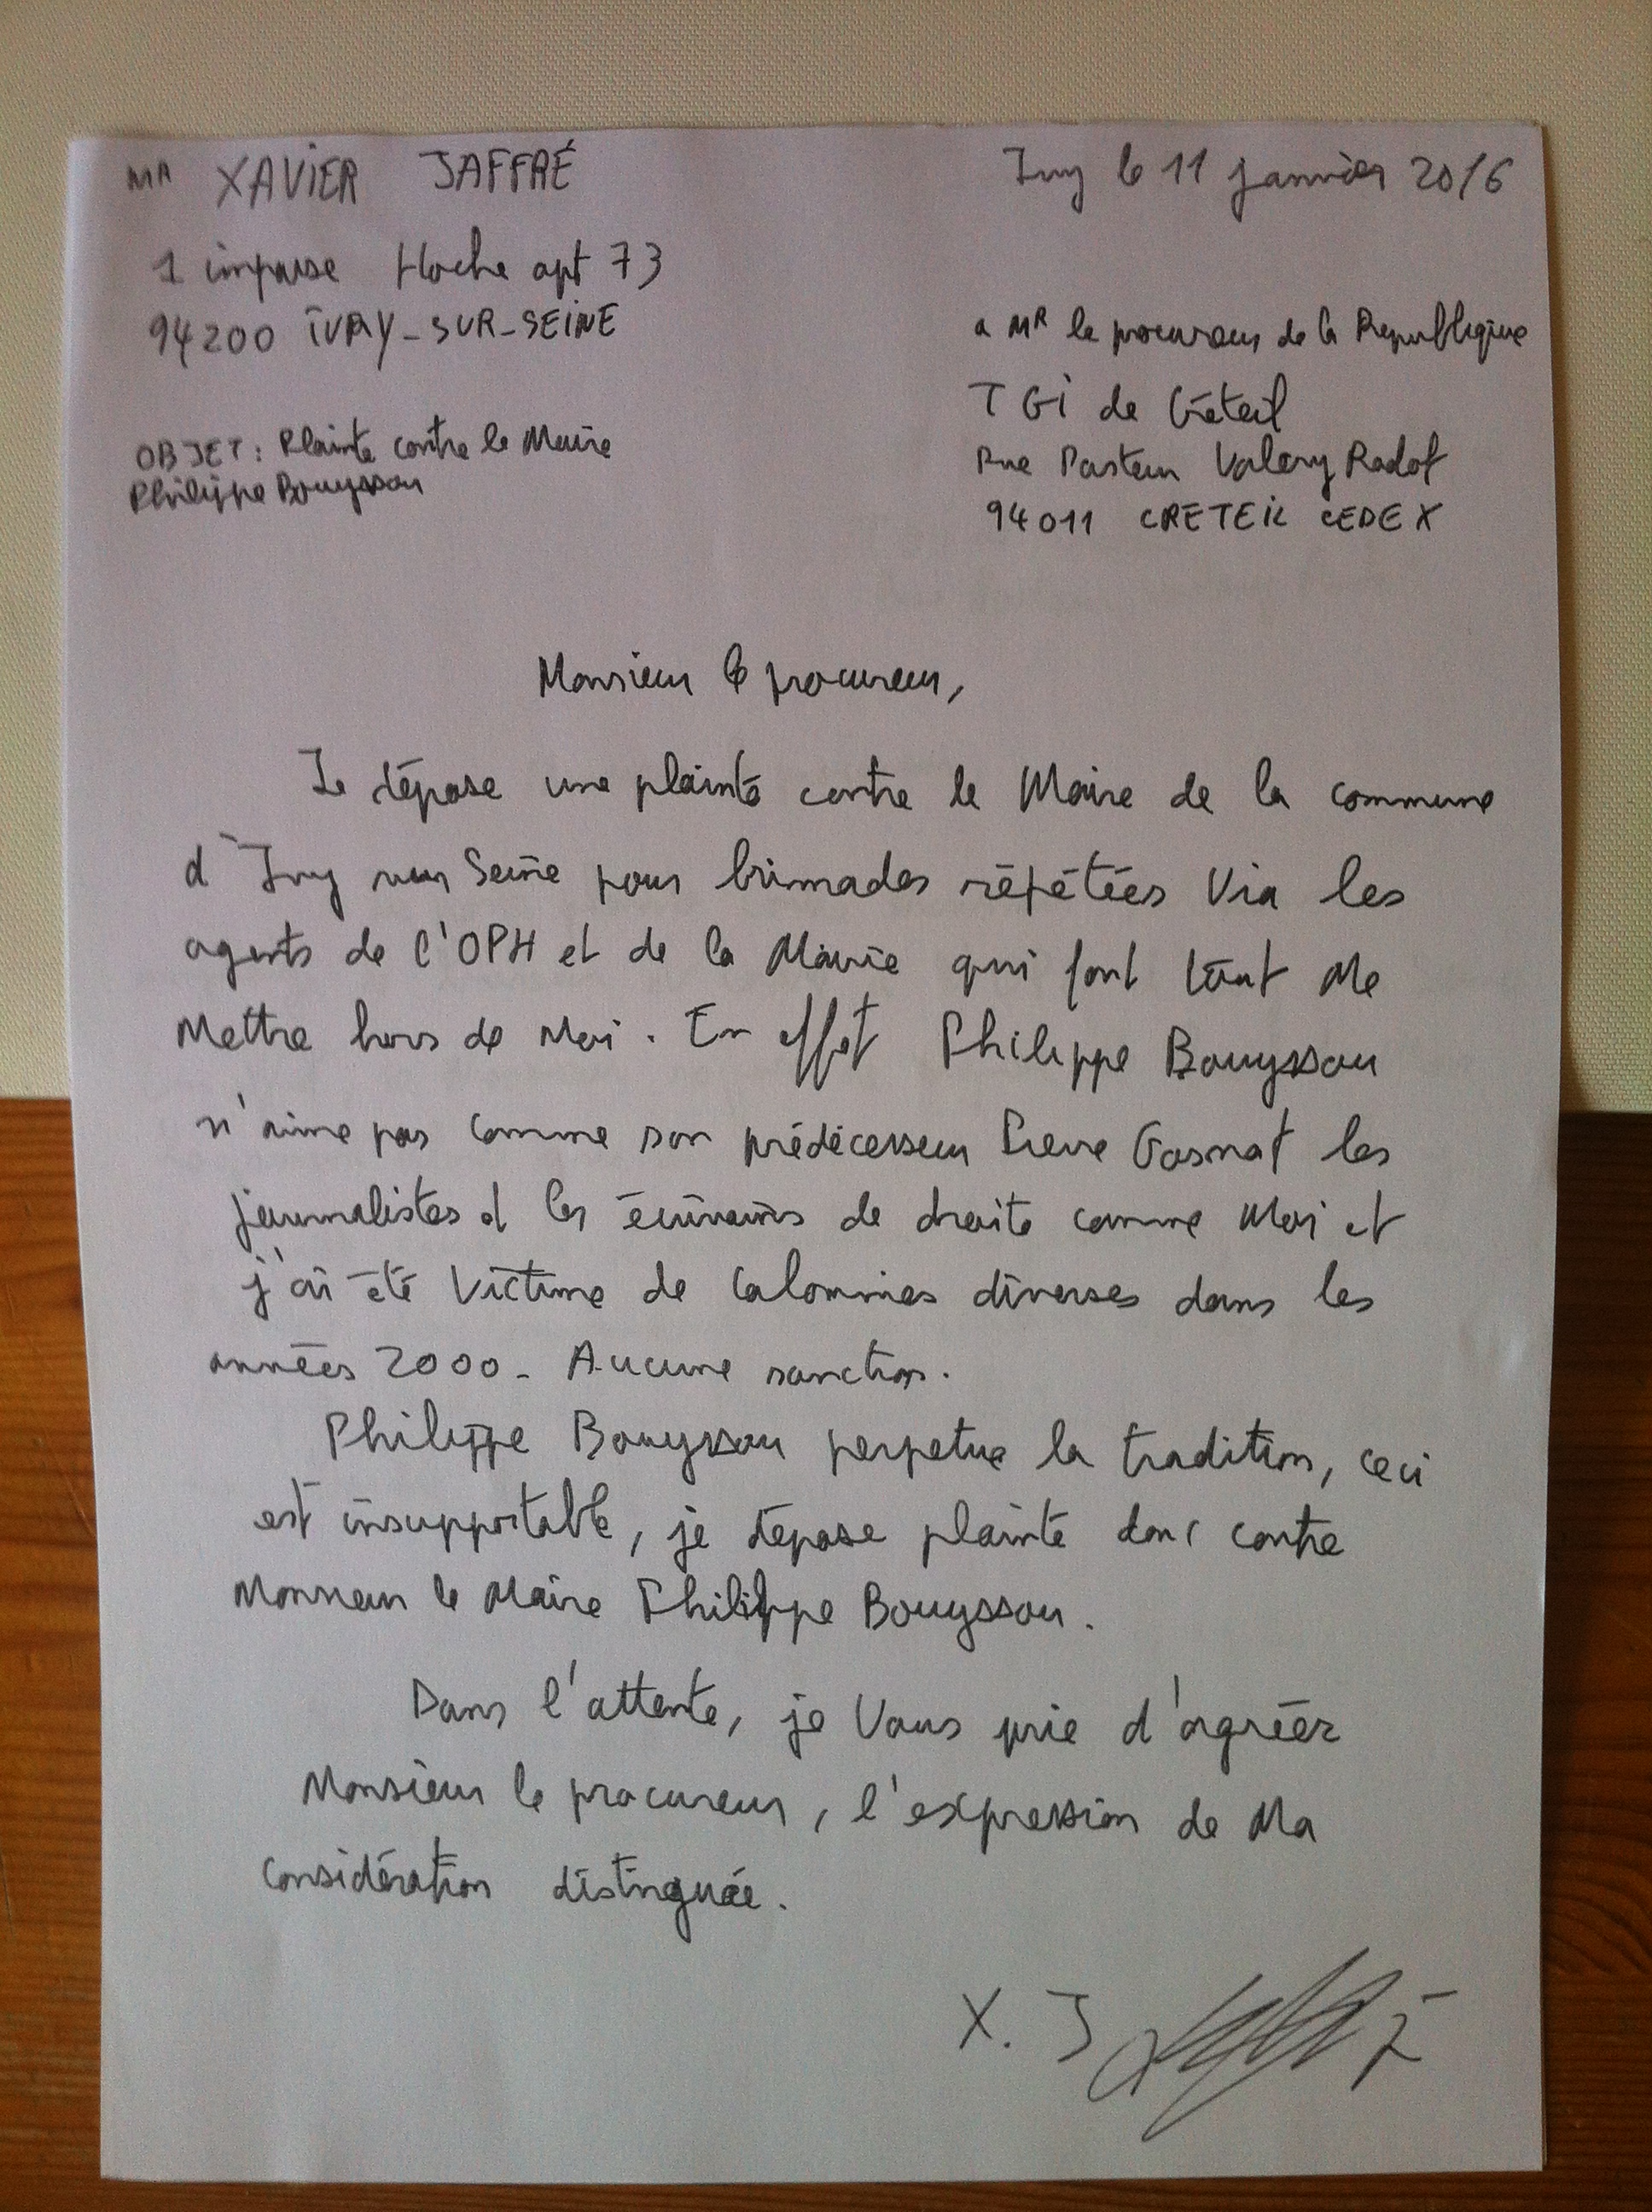 MR XAVIER JAFFRÉ
1 impasse Hoche apt 73
94200 IVRY-SUR-SEINE
OBJET : Plainte contre le Maire
Philippe Bouyssou
Ivry le 11 janvier 2016
a MR le procureur de la Republique
TGI de Créteil
Rue Pasteur Valery Radot
94011 CRETEIL CEDEX
Monsieur le procureur,
Je dépose une plainte contre le Maire de la commune
d'Ivry sur Seine pour brimades répétées via les
agents de l'OPH et de la Mairie qui font tout me
mettre hors de moi. En effet Philippe Bouyssou
n'aime pas comme son prédécesseur Pierre Gosnat les
journalistes et les écrivains de droite comme moi et
j'ai été victime de calomnies diverses dans les
années 2000. Aucune sanction.
Philippe Bouyssou perpetue la tradition, ceci
est insupportable, je dépose plainte donc contre
Monsieur le Maire Philippe Bouyssou.
Dans l'attente, je vous prie d'agréer
Monsieur le procureur, l'expression de ma
considération distinguée.
X. Jaffré